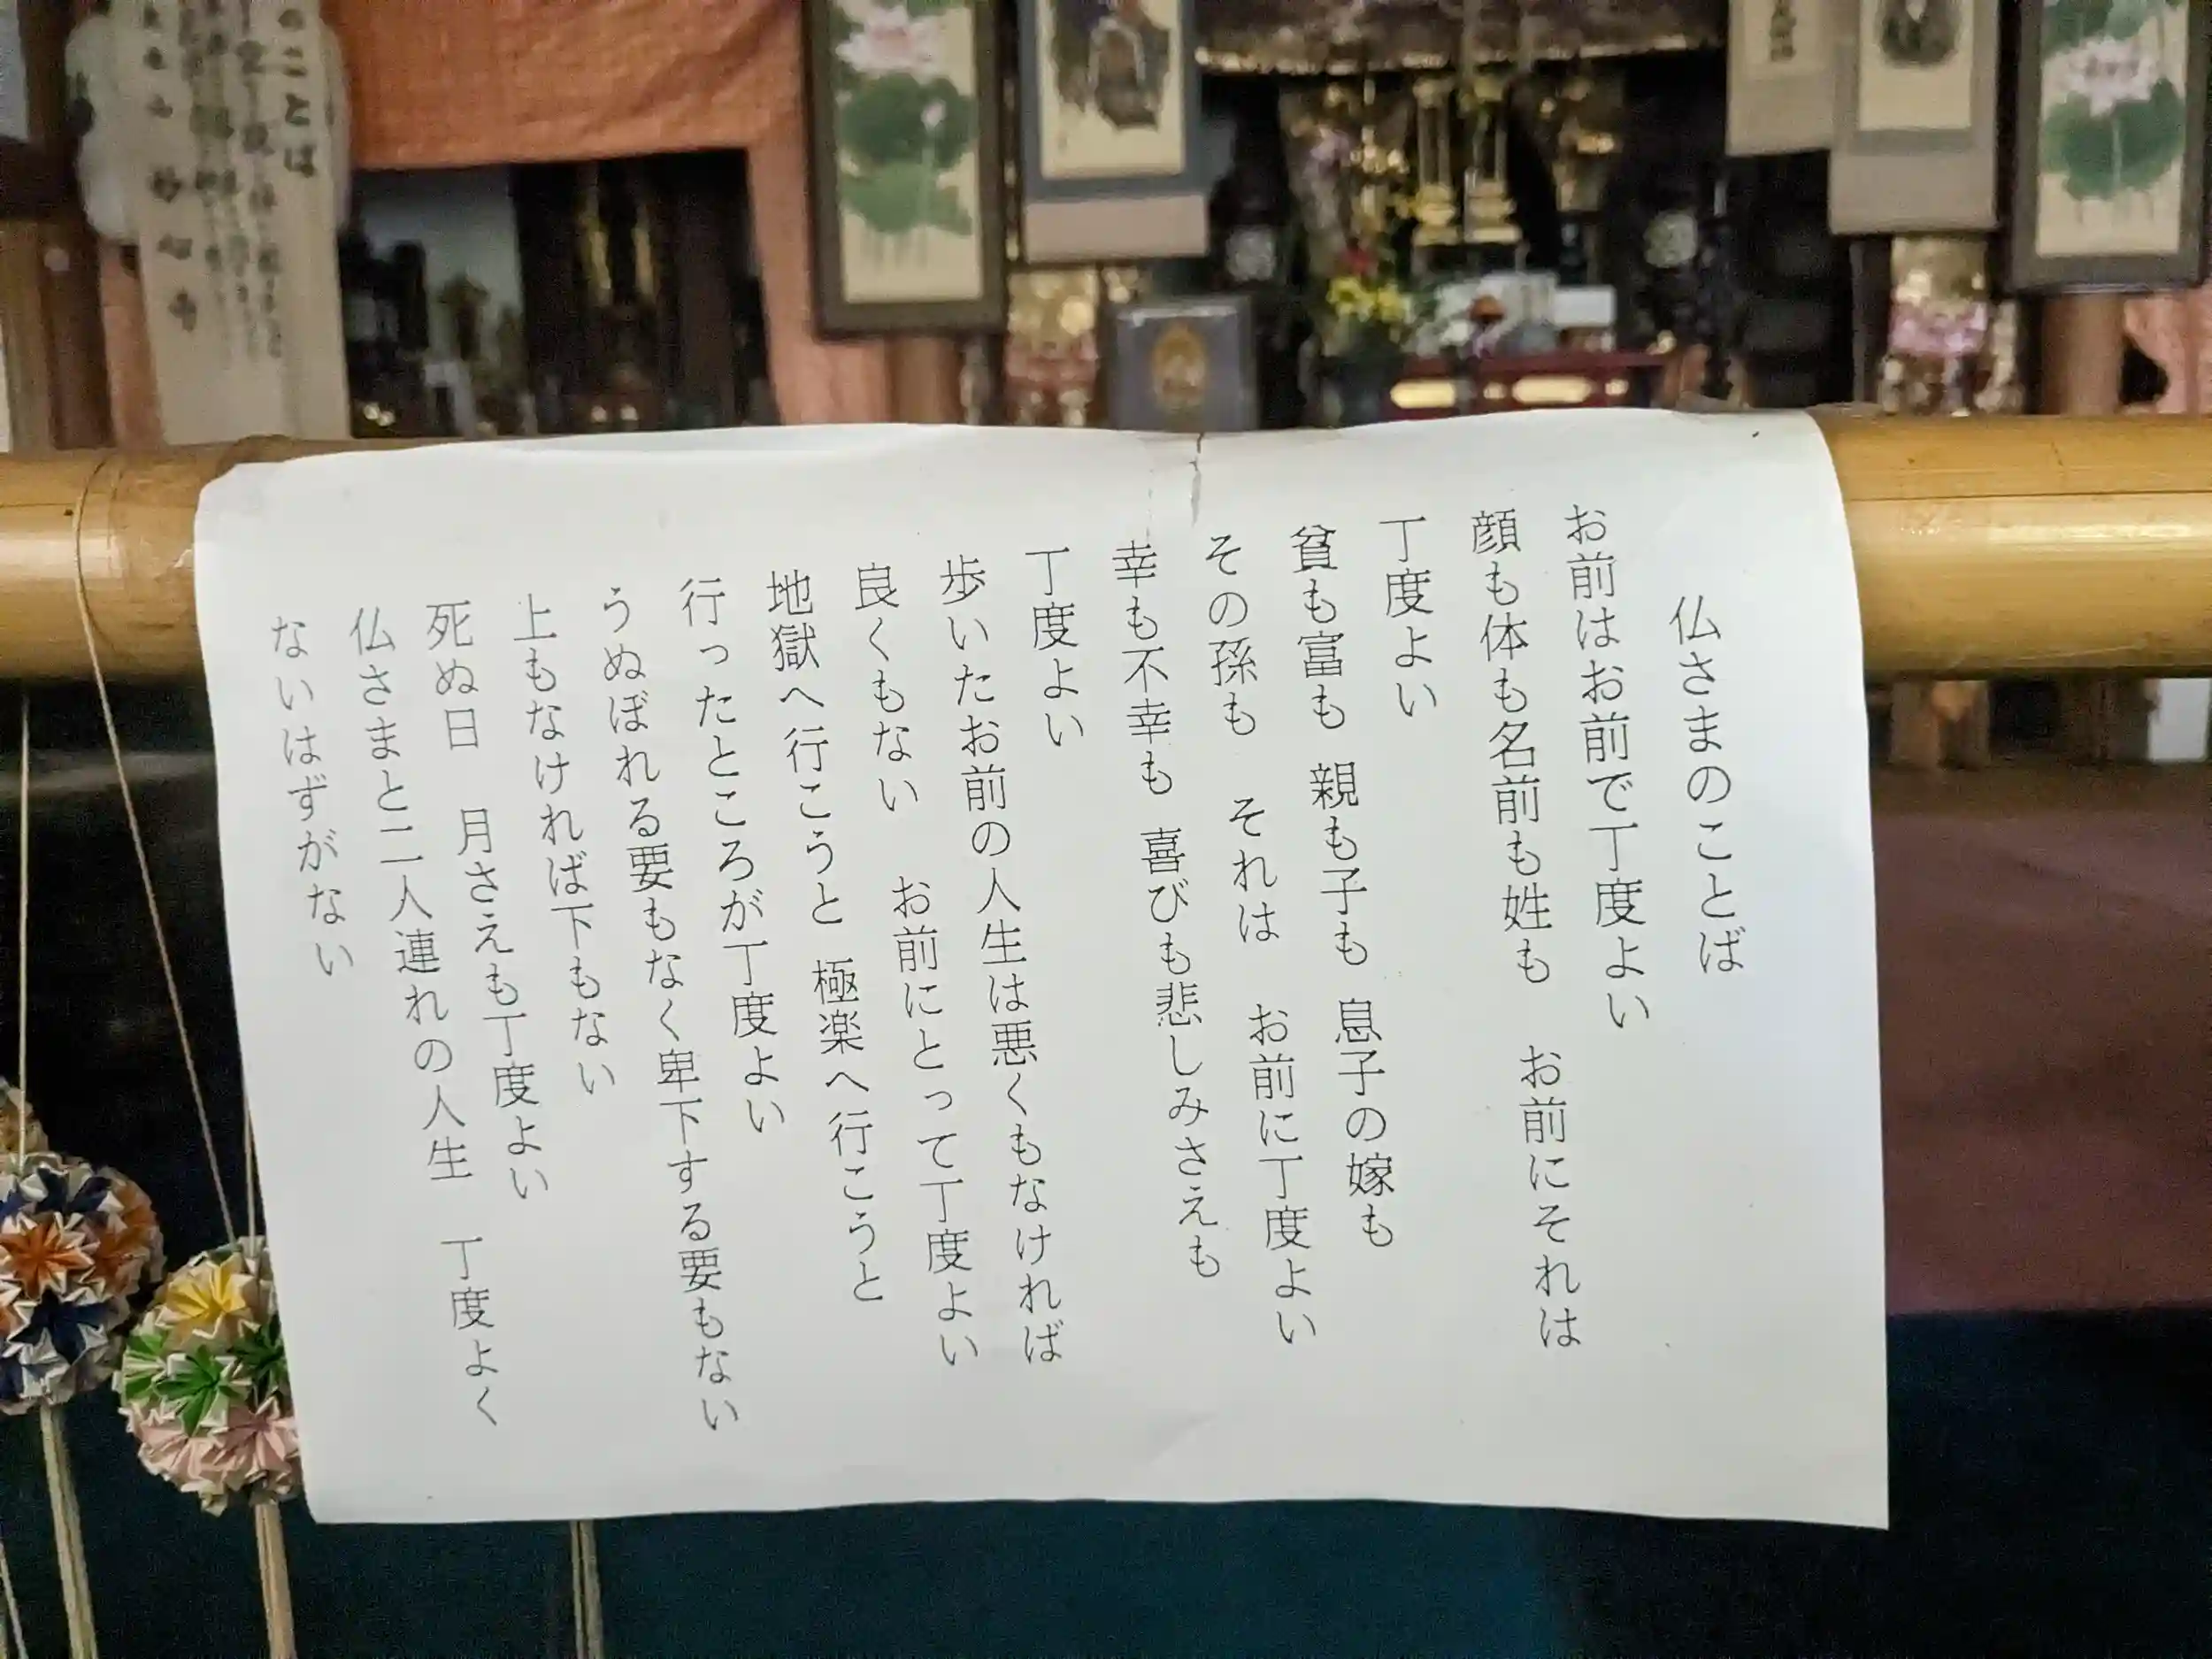 仏さまのことば
お前はお前で丁度よい
顔も体も名前も姓も　お前にそれは
丁度よい
貧も富も 親も子も 息子の嫁も
その孫も　それは　お前に丁度よい
幸も不幸も 喜びも悲しみさえも
丁度よい
歩いたお前の人生は悪くもなければ
良くもない　お前にとって丁度よい
地獄へ行こうと 極楽へ行こうと
行ったところが丁度よい
うぬぼれる要もなく卑下する要もない
上もなければ下もない
死ぬ日　月さえも丁度よい
仏さまと二人連れの人生　丁度よく
ないはずがない
のことば